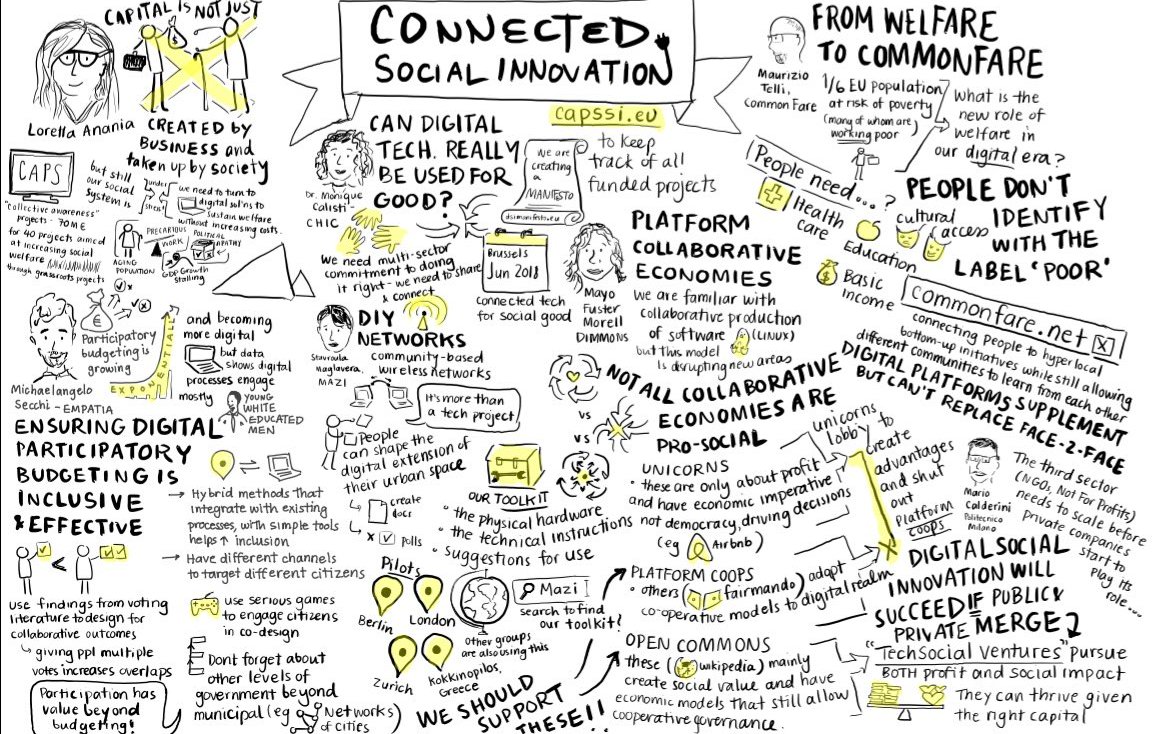 CAPITAL IS NOT JUST
CREATED BY
BUSINESS and
taken up by society
Loretta Anania
CAPS
"collective awareness"
projects - 70M€
for 40 projects aimed
at increasing social
welfare
through grassroots projects
but still
our social
system is
under
stress
we need to turn to
digital sol'ns to
sustain welfare
without increasing costs.
AGING
POPULATION
PRECARIOUS
WORK
POLITICAL
APATHY
GDP Growth
Stalling
CONNECTED
SOCIAL INNOVATION
capssi.eu
to keep
track of all
funded projects
CAN DIGITAL
TECH. REALLY
BE USED FOR
GOOD?
Dr. Monique
Calisti -
CHIC
We need multi-sector
commitment to doing
it right - we need to share
& connect
we are
creating
a
MANIFESTO
dsimanifesto.eu
Brussels
Jun 2018
connected tech
for social good
Mayo
Fuster
Morell
DIMMONS
PLATFORM
COLLABORATIVE
ECONOMIES
We are familiar with
collaborative production
of software (LINUX)
but this model
is disrupting new areas
NOT ALL COLLABORATIVE
ECONOMIES ARE
PRO-SOCIAL
vs
vs
UNICORNS
• these are only about profit
and have economic imperative,
not democracy, driving decisions
(eg Airbnb)
unicorns
lobby to
create
advantages
and shut
out
platform
coops
PLATFORM COOPS
• others (fairmondo) adapt
co-operative models to digital realm
OPEN COMMONS
these (wikipedia) mainly
create social value and have
economic models that still allow
cooperative governance.
FROM WELFARE
TO COMMONFARE
Maurizio
Telli,
Common Fare
1/6 EU population
at risk of poverty
(many of whom are
working poor)
What is the
new role of
welfare in
our digital era?
People need...?
Health
care
Education
cultural
access
Basic
income
PEOPLE DON'T
IDENTIFY
WITH THE
LABEL 'POOR'
commonfare.net x
connecting people to hyperlocal
bottom-up initiatives while still allowing
different communities to learn from each other
DIGITAL PLATFORMS SUPPLEMENT
BUT CAN'T REPLACE FACE-2-FACE
Mario
Calderini
Politecnico
Milano
The third sector
(NGO, Not For Profits)
needs to scale before
private companies
start to
play its
role...
DIGITAL SOCIAL
INNOVATION WILL
SUCCEED IF PUBLIC &
PRIVATE MERGE
"TechSocial Ventures" pursue
BOTH profit and social impact
They can thrive given
the right capital
Michaelangelo
Secchi - EMPATIA
€
Participatory
budgeting is
growing
EXPONENTIALLY
and becoming
more digital
but data
shows digital
processes engage
mostly
YOUNG
WHITE
EDUCATED
MEN
ENSURING DIGITAL
PARTICIPATORY
BUDGETING IS
INCLUSIVE
& EFFECTIVE
→ Hybrid methods that
integrate with existing
processes, with simple tools
helps ↑ inclusion
→ Have different channels
to target different citizens
<
use findings from voting
literature to design for
collaborative outcomes
↳ giving ppl multiple
votes increases overlaps
Participation has
value beyond
budgeting!
use serious games
to engage citizens
in co-design
Dont forget about
other levels of
government beyond
municipal (eg Networks
of cities)
DIY
NETWORKS
community-based
wireless networks
MAZI
It's more than
a tech project
People
can shape the
digital extension of
their urban space
create
docs
polls
OUR TOOLKIT
• the physical hardware
• the technical instructions
• suggestions for use
Pilots
Berlin
London
Zurich
Kokkinopilos,
Greece
Other groups
are also using this
Mazi
search to find
our toolkit!
WE SHOULD
SUPPORT
THESE!!